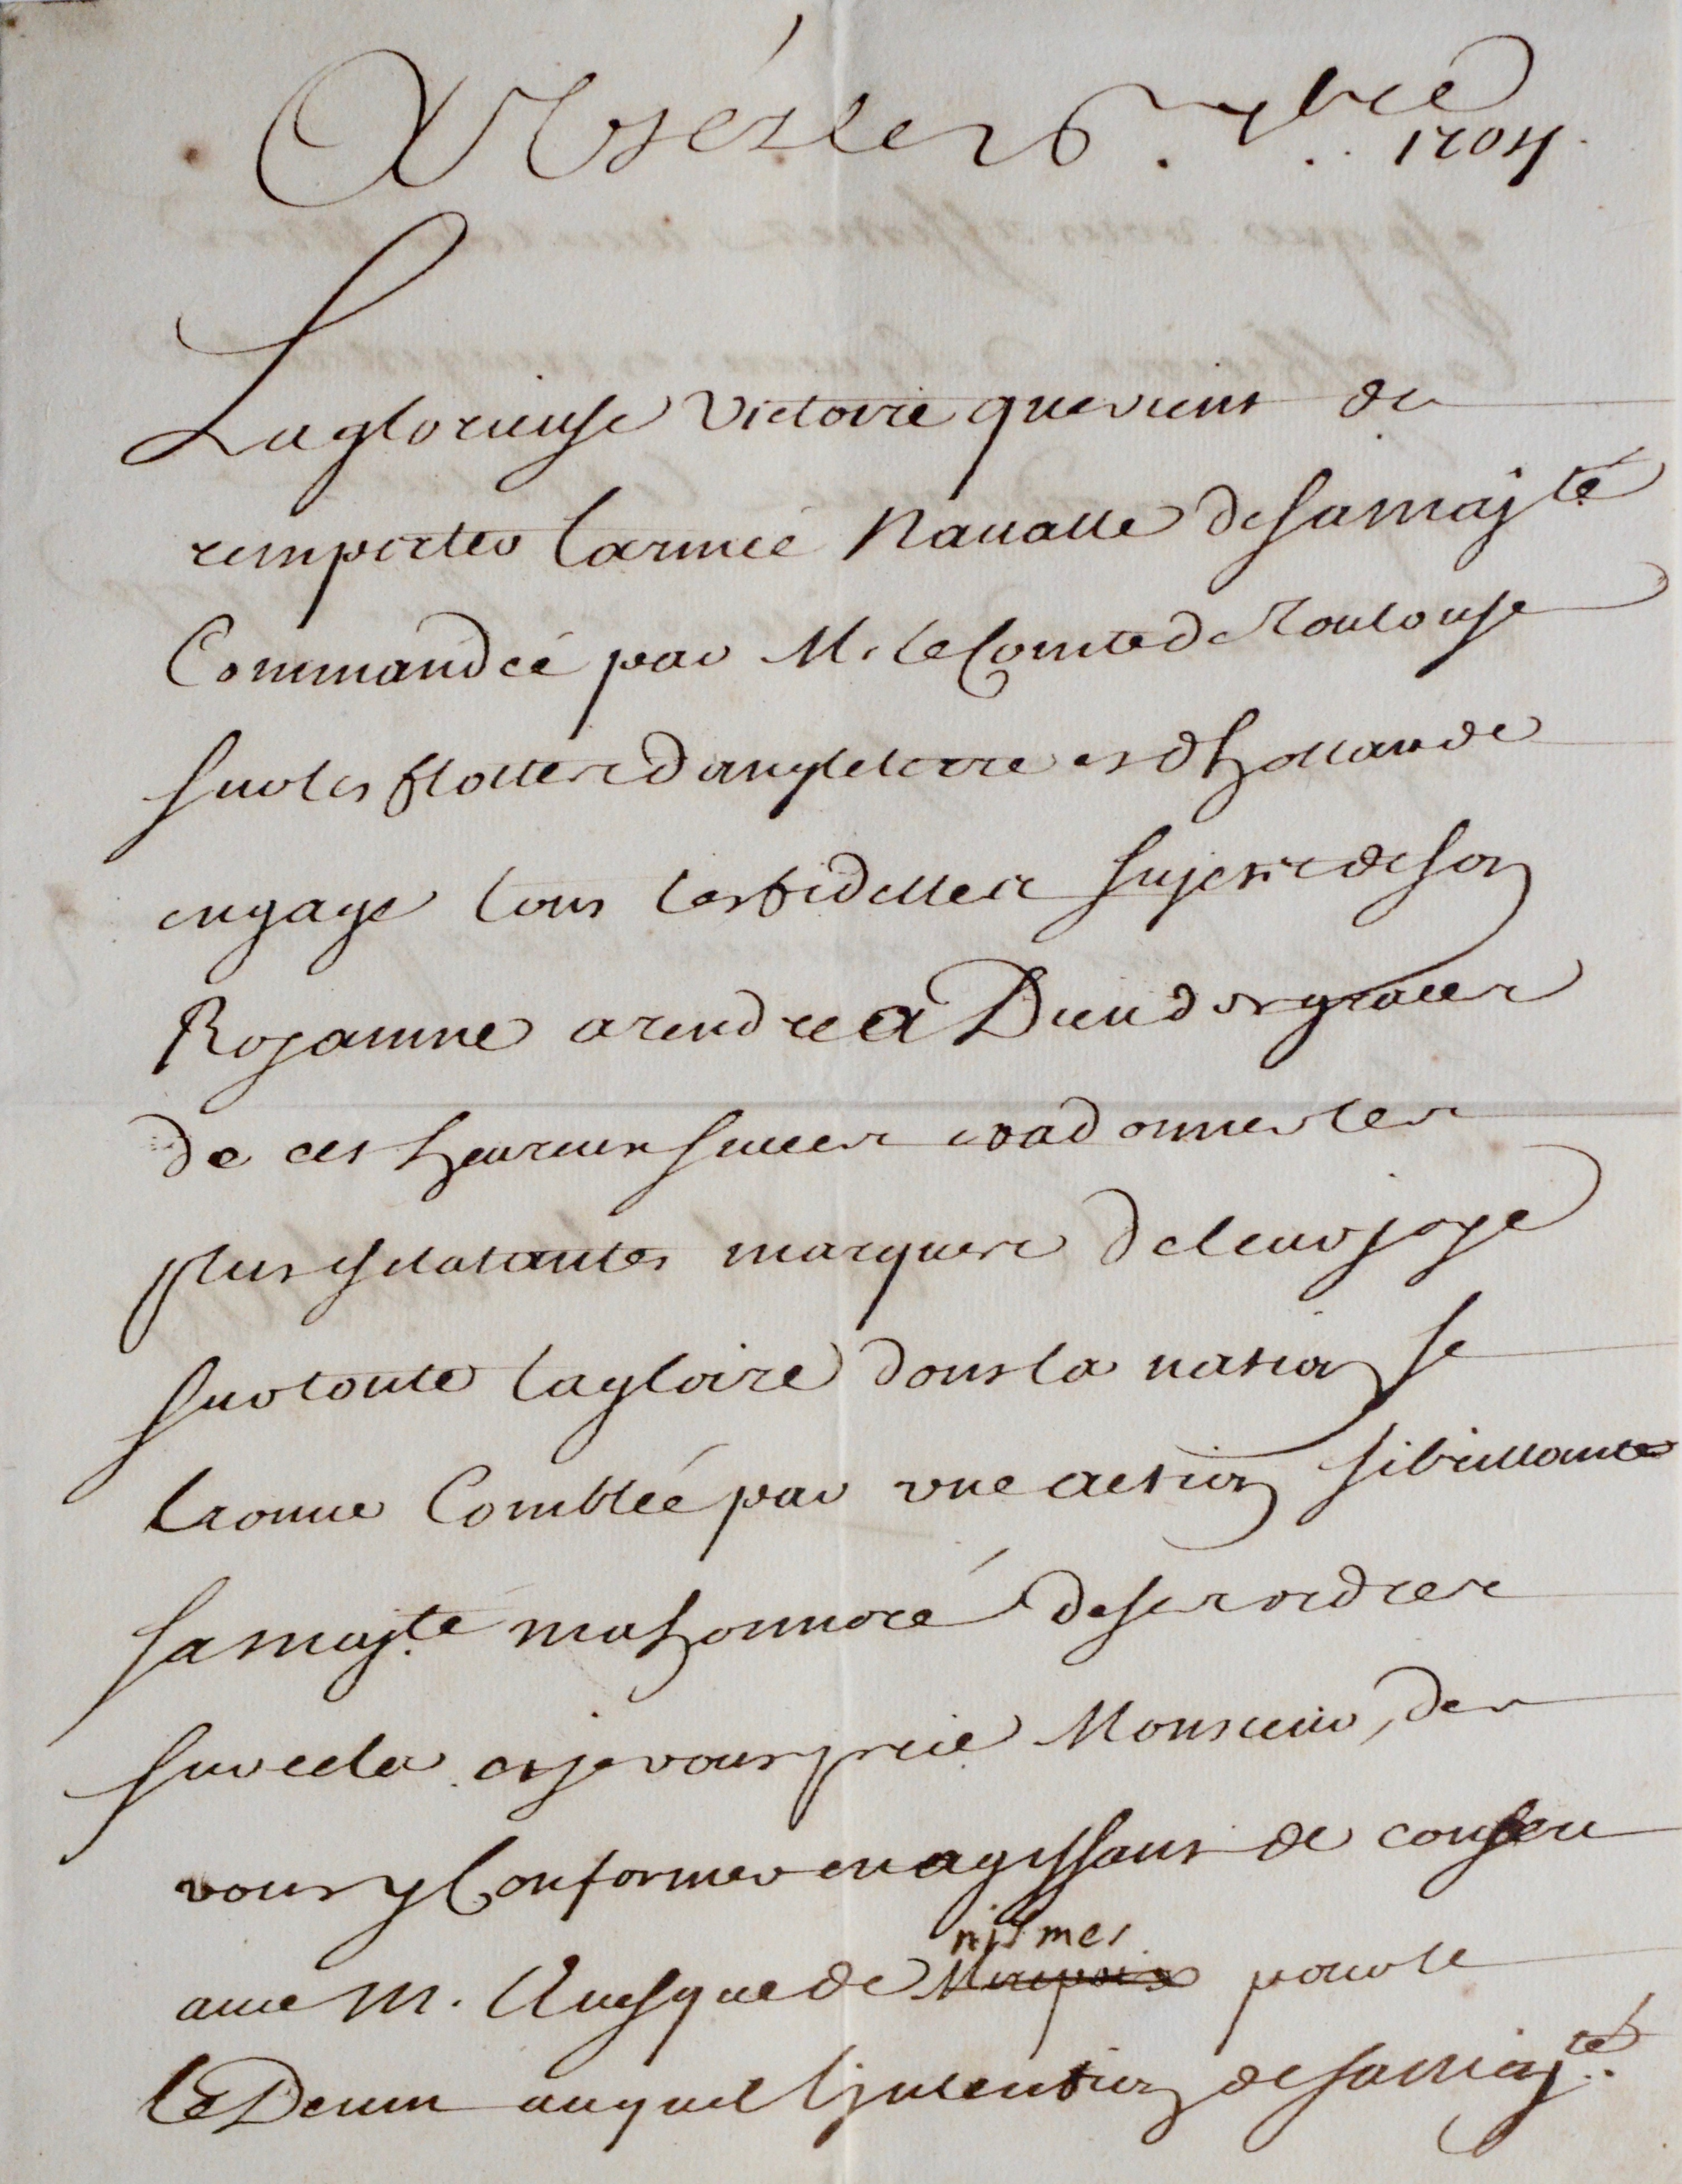 A Uséz le 26 7bre
1704
La glorieuse victoire que vient de
remporter larmée Naualle de sa maj.té
Commandée par M. le Comte de Toulouse
sur les flottes dangleterre et dhollande
engage tous les fidelles sujets de son
Royaume a rendre a Dieu des graces
de ces heureux succes et a donner les
plus esclatantes marques de leur joye
sur toute la gloire dont la nation se
trouue Comblée par vne action si brillante
sa maj.té ma honnoré de ses ordres
sur cela et je vous prie Monsieur, de
vous y Conformer en agissant de concert
auec M. lEuesque de nismes pour le
te Deum auquel lintention de sa maj.té